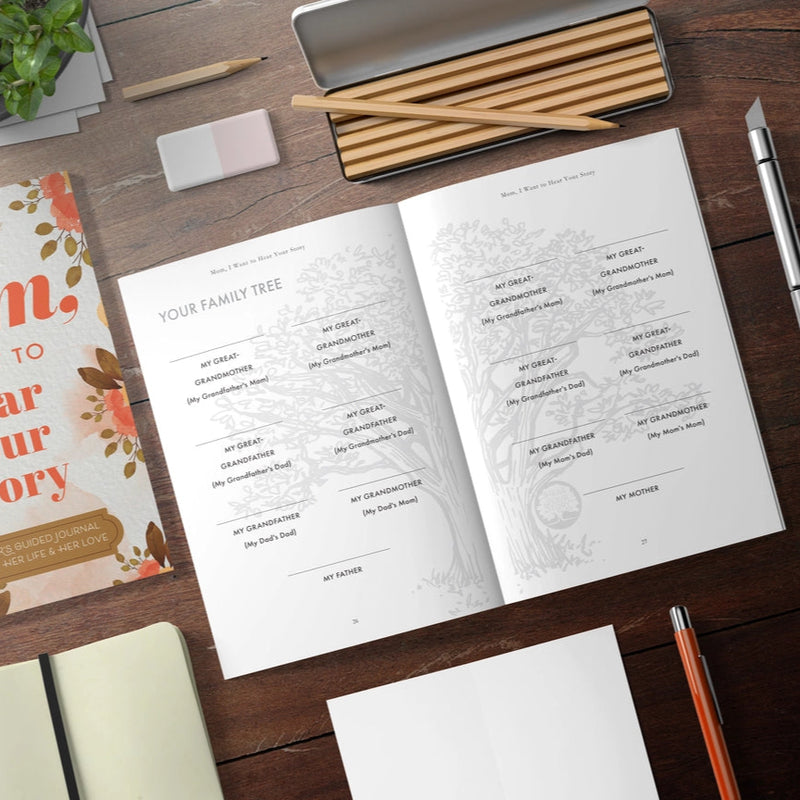 m,
TO
ar
ur
ory
R'S GUIDED JOURNAL
HER LIFE & HER LOVE
Mom, I Want to Hear Your Story
YOUR FAMILY TREE
MY GREAT-
GRANDMOTHER
(My Grandfather's Mom)
MY GREAT-
GRANDMOTHER
(My Grandmother's Mom)
MY GREAT-
GRANDFATHER
(My Grandfather's Dad)
MY GREAT-
GRANDFATHER
(My Grandmother's Dad)
MY GRANDFATHER
(My Dad's Dad)
MY GRANDMOTHER
(My Dad's Mom)
MY FATHER
26
Mom, I Want to Hear Your Story
MY GREAT-
GRANDMOTHER
(My Grandfather's Mom)
MY GREAT-
GRANDMOTHER
(My Grandmother's Mom)
MY GREAT-
GRANDFATHER
(My Grandfather's Dad)
MY GREAT-
GRANDFATHER
(My Grandmother's Dad)
MY GRANDFATHER
(My Mom's Dad)
MY GRANDMOTHER
(My Mom's Mom)
MY MOTHER